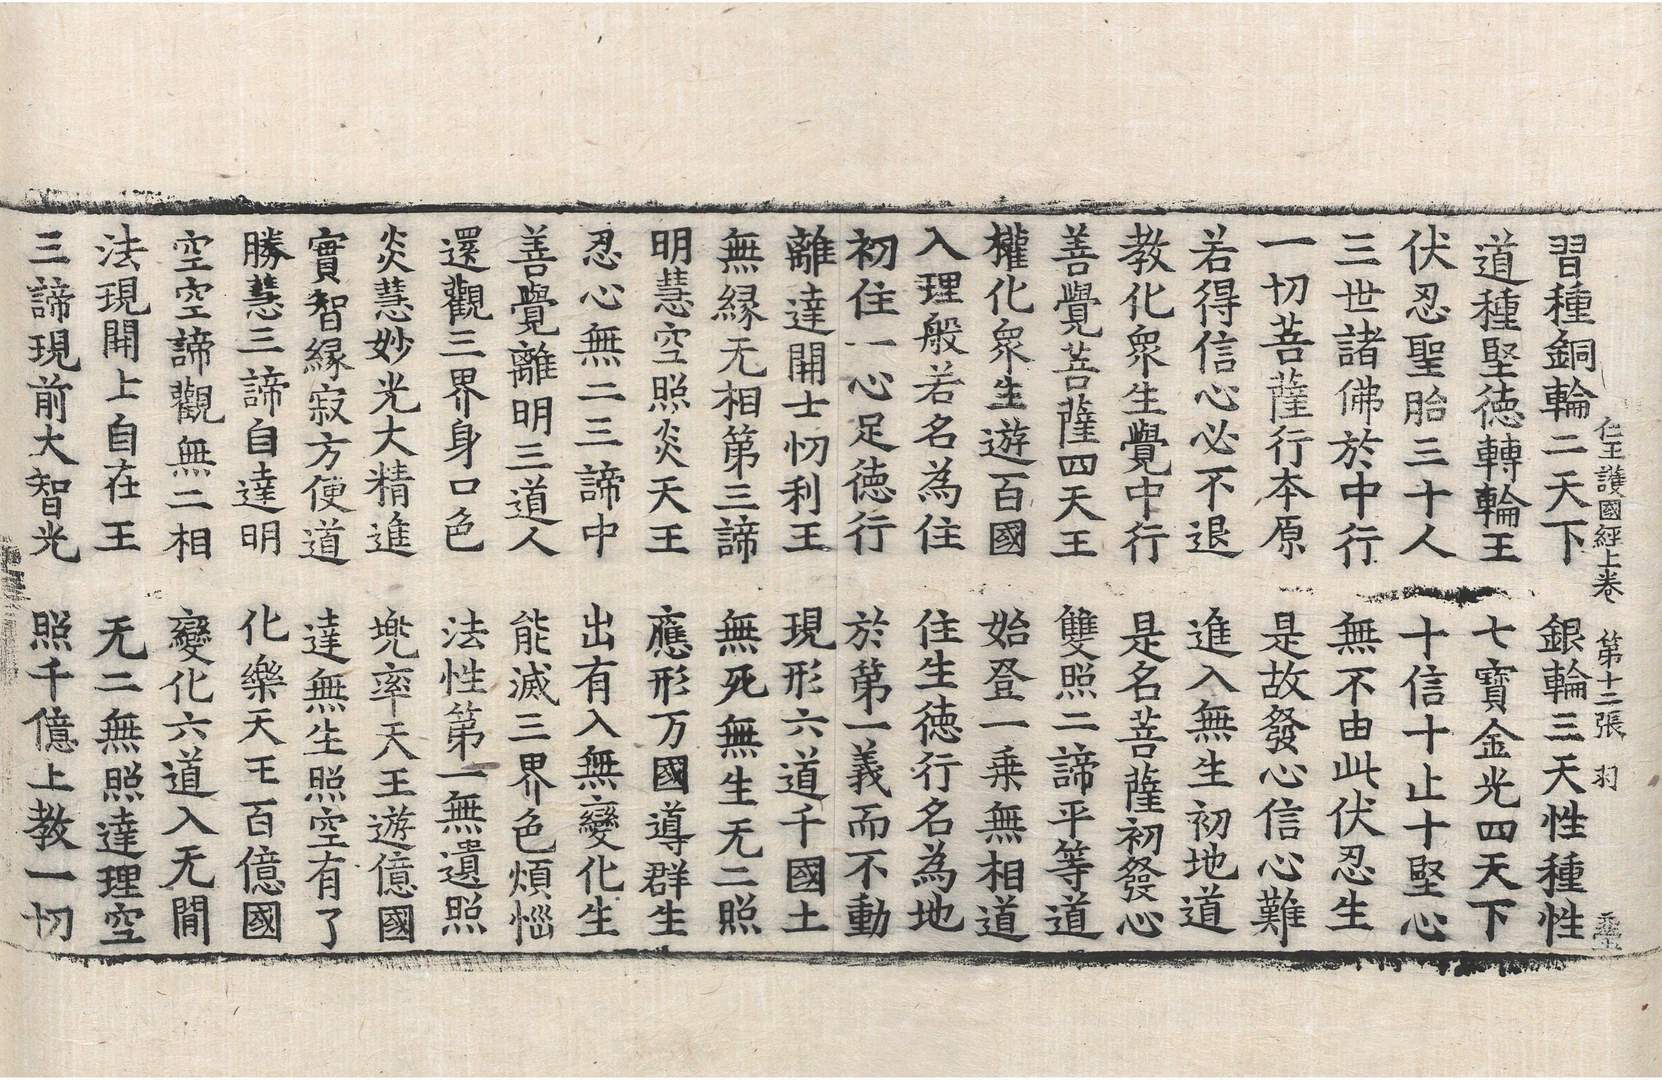 仁王護國經上卷 第十二張 羽
習種銅輪二天下 銀輪三天性種性
道種堅徳轉輪王 七寶金光四天下
伏忍聖胎三十人 十信十止十堅心
三世諸佛於中行 無不由此伏忍生
一切菩薩行本原 是故發心信心難
若得信心必不退 進入無生初地道
教化衆生覺中行 是名菩薩初發心
善覺菩薩四天王 雙照二諦平等道
權化衆生遊百國 始登一乗無相道
入理般若名為住 住生徳行名為地
初住一心足徳行 於第一義而不動
離達開士忉利王 現形六道千國土
無緣无相第三諦 無死無生无二照
明慧空照炎天王 應形万國導群生
忍心無二三諦中 出有入無變化生
善覺離明三道人 能滅三界色煩惱
還觀三界身口色 法性第一無遺照
炎慧妙光大精進 兠率天王遊億國
實智緣寂方便道 達無生照空有了
勝慧三諦自達明 化樂天王百億國
空空諦觀無二相 變化六道入无間
法現開上自在王 无二無照達理空
三諦現前大智光 照千億上教一切